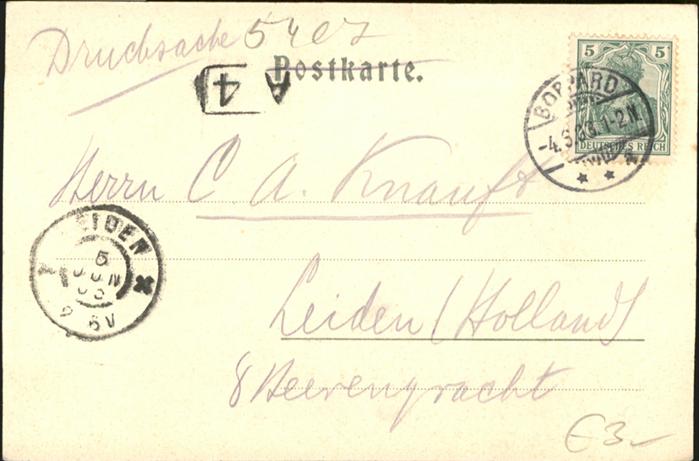 Drucksache 5407
Postkarte.
A 4
5 5
DEUTSCHES REICH
BOPPARD
-4.6.03.1-2N.
Herrn C A. Knauff
LEIDEN
5
JUN
03
6V
Leiden (Holland)
8 Heerengracht
€3-